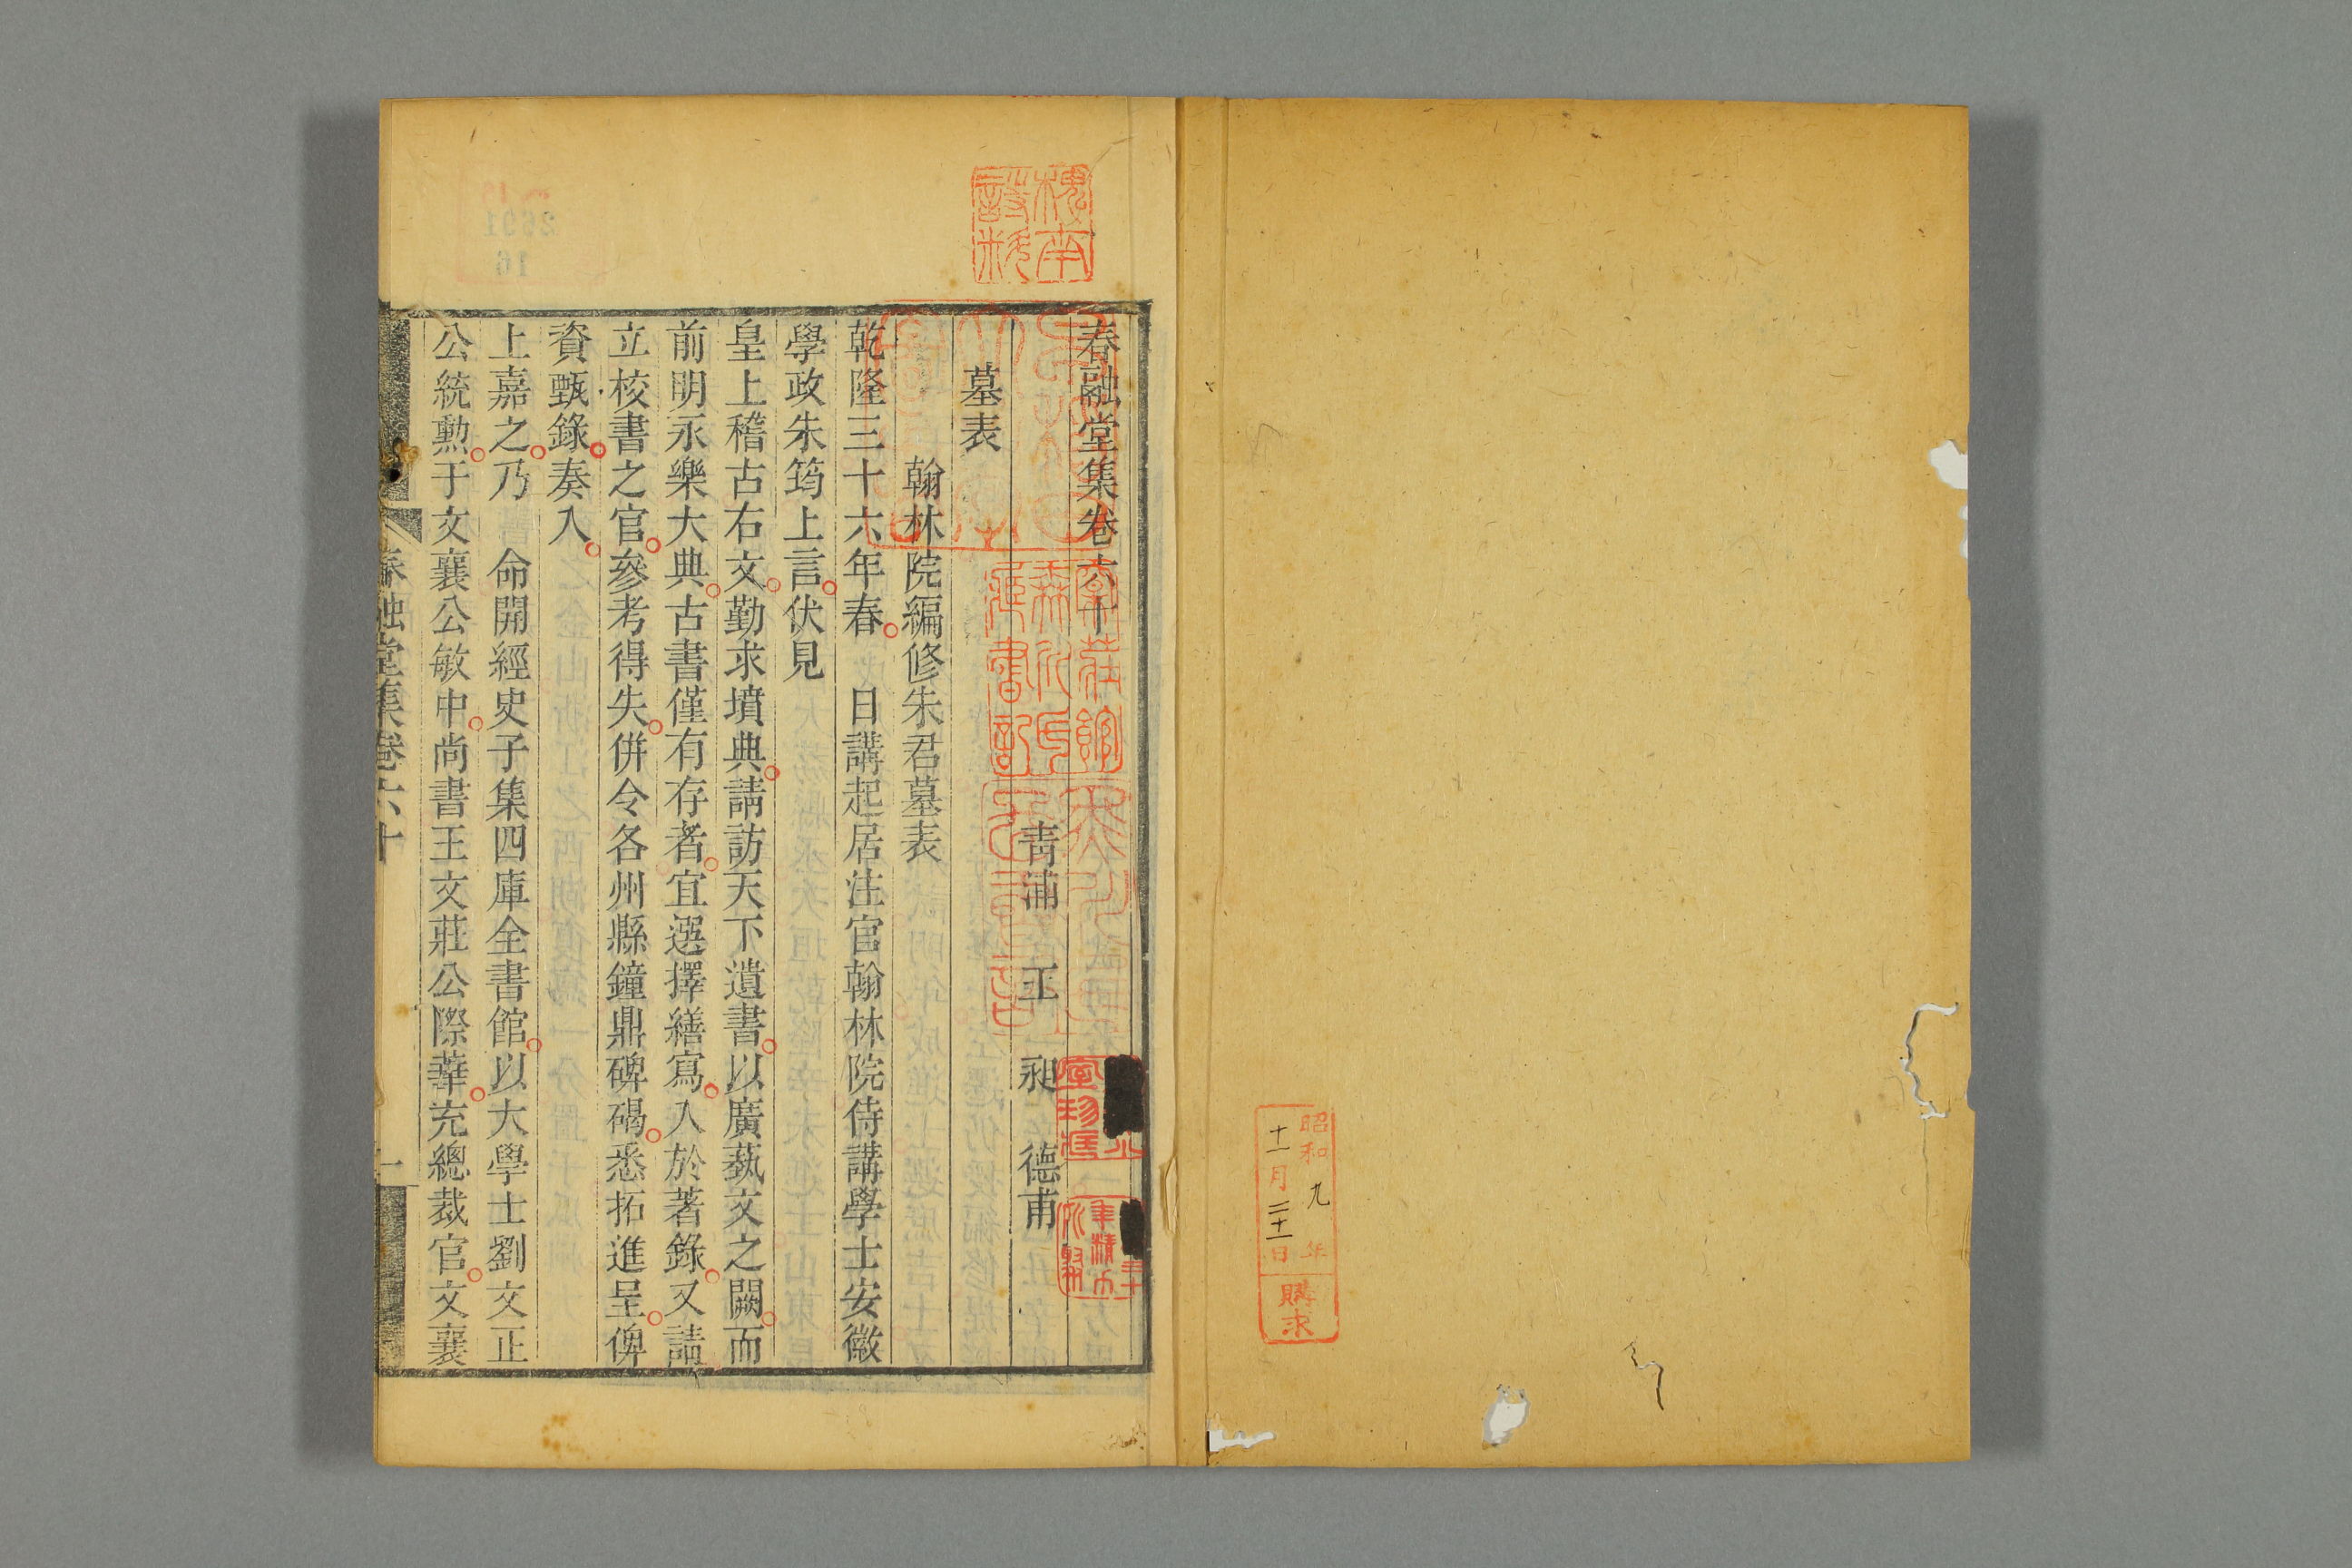 昭和九年
十一月二十一日
購求
槐南
詩料
春融堂集卷六十
青浦 王 昶 德甫
墓表
翰林院編修朱君墓表
乾隆三十六年春 日講起居注官翰林院侍講學士安徽
學政朱筠上言伏見
皇上稽古右文勤求墳典請訪天下遺書以廣藝文之闕而
前明永樂大典古書僅有存者宜選擇繕寫入於著錄又請
立校書之官參考得失併令各州縣鐘鼎碑碣悉拓進呈俾
資甄錄奏入
上嘉之乃 命開經史子集四庫全書館以大學士劉文正
公統勲于文襄公敏中尚書王文莊公際華充總裁官文襄
春融堂集卷六十
一